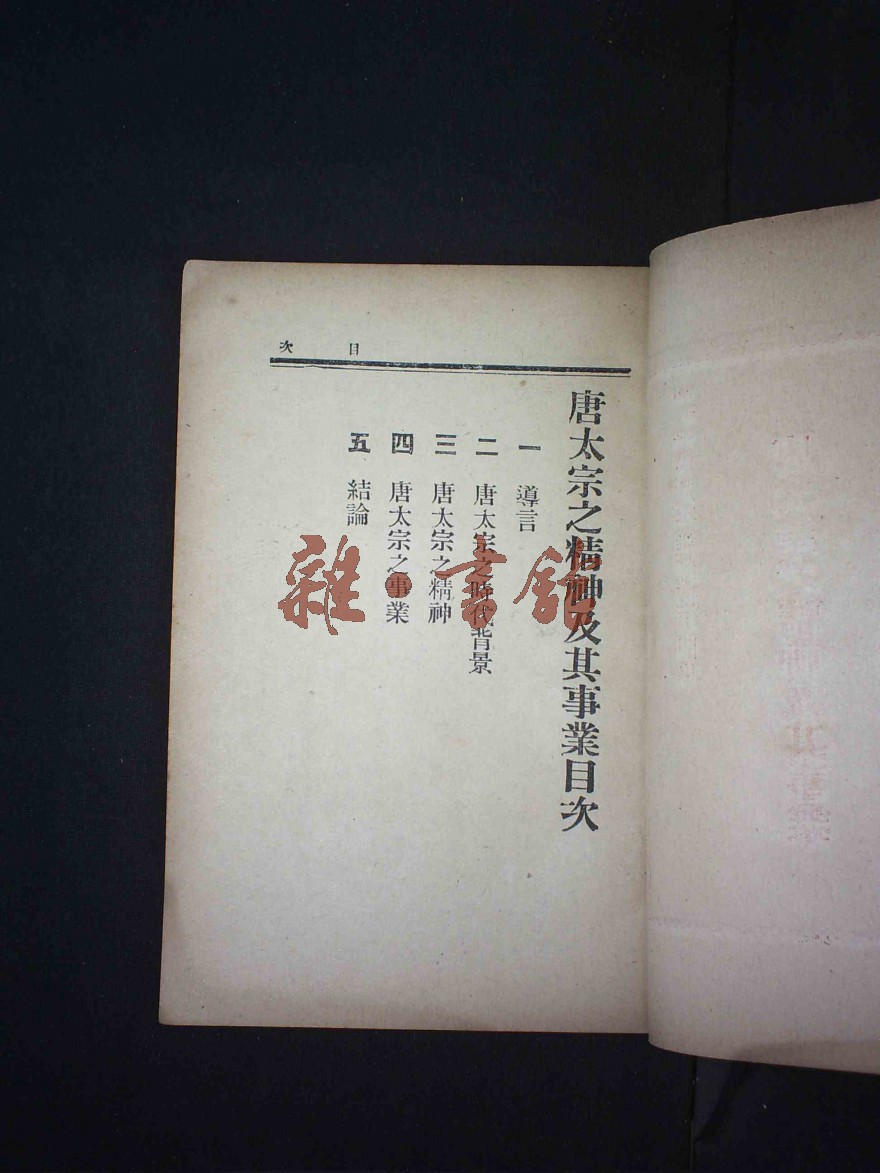 目次
唐太宗之精神及其事業目次
一 導言
二 唐太宗之時代背景
三 唐太宗之精神
四 唐太宗之事業
五 結論
雜·書館